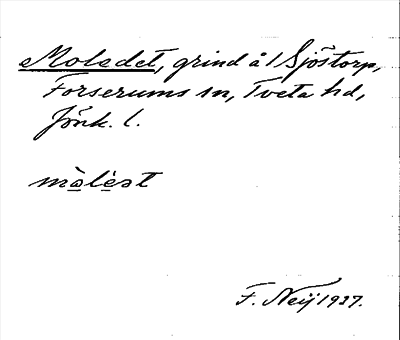 Moledet, grind å 1 Sjöstorp,
Forserums sn, Tveta hd,
Jönk. l.
mòlèət
F. Neij 1937.